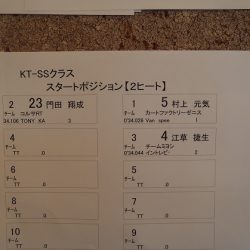 KT-SSクラス
スタートポジション【2ヒート】
2 23 門田 翔成
チーム コルサRT
34.106 TONY KA 3
1 5 村上 元気
チーム カートファクトリーゼニス
0'34.028 Van spee 1
4
チーム
TT .0
3 4 江草 捷生
チーム チームミヨシ
0'34.047 イントレピ 2
6
チーム
TT .0
5
チーム
TT .0
8
チーム
TT .0
7
チーム
TT .0
10
9
チーム
TT .0